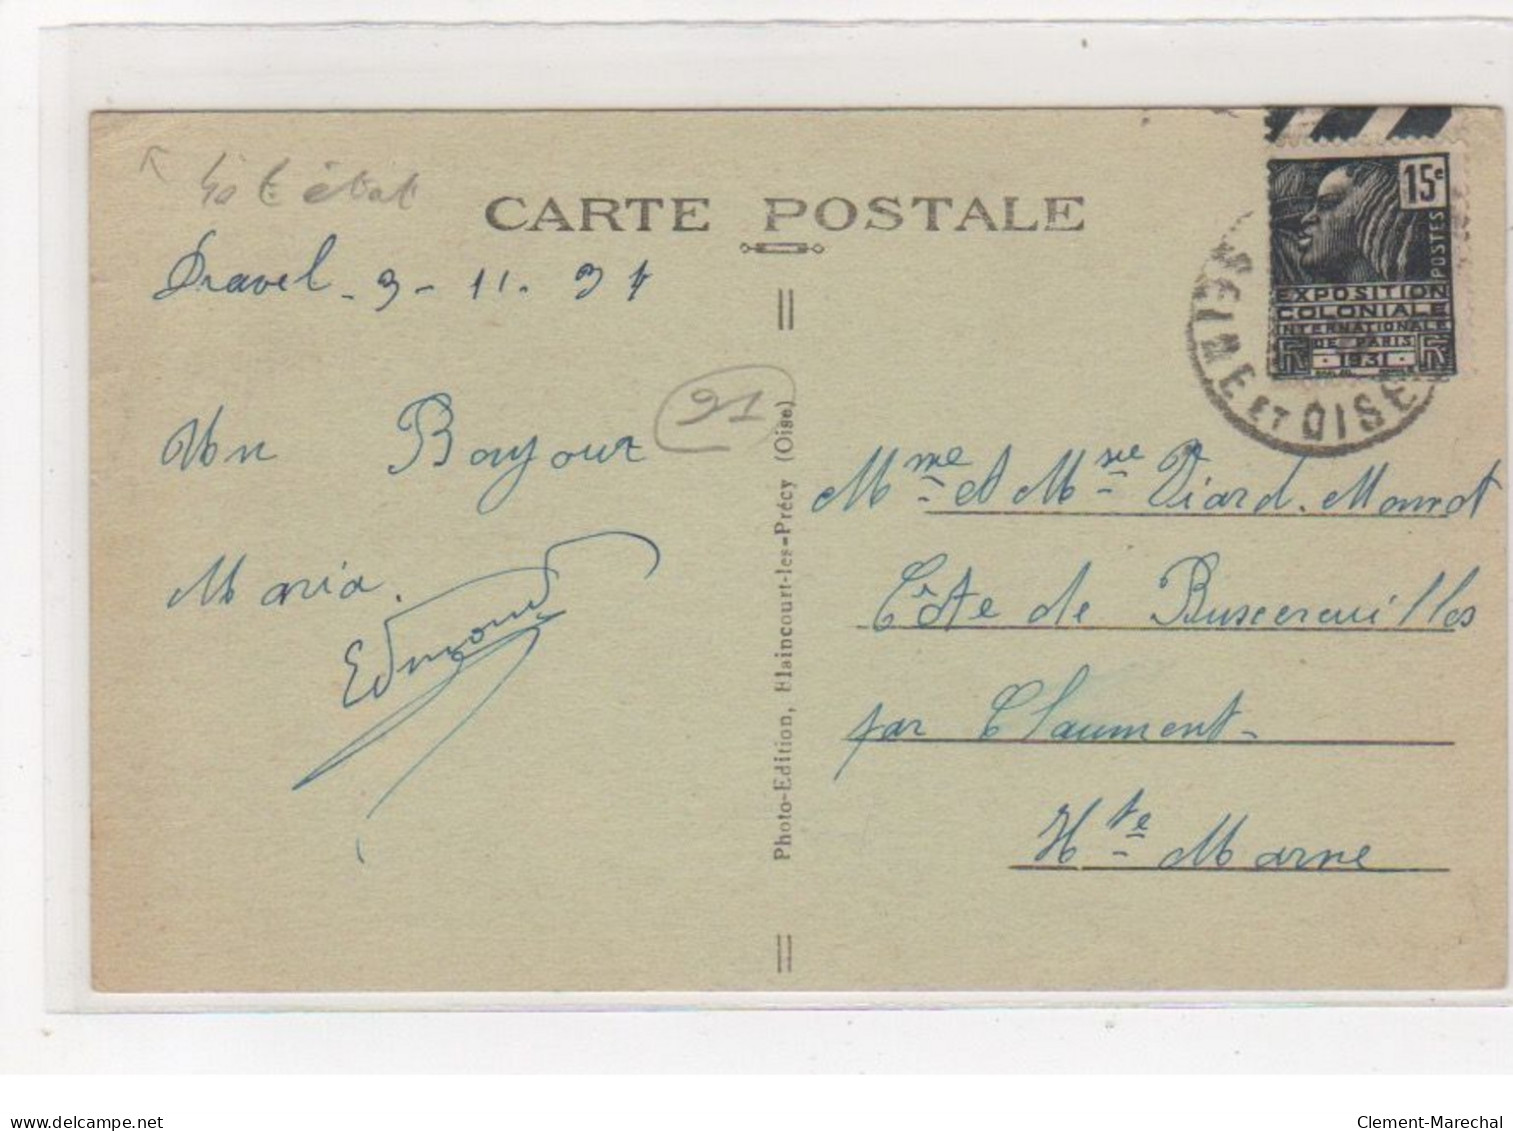 état
CARTE POSTALE
Dravel - 3 - 11. 31
Un Bonjour
Maria.
Edmond
91
Photo-Edition, Blaincourt-les-Précy (Oise)
15c
POSTES
EXPOSITION
COLONIALE
INTERNATIONALE
DE PARIS
1931
SEINE ET OISE
Mme et Msie Viard. Mourot
Côte de Buxereuilles
par Chaumont -
Hte Marne
delcampe.net
Clement-Marechal